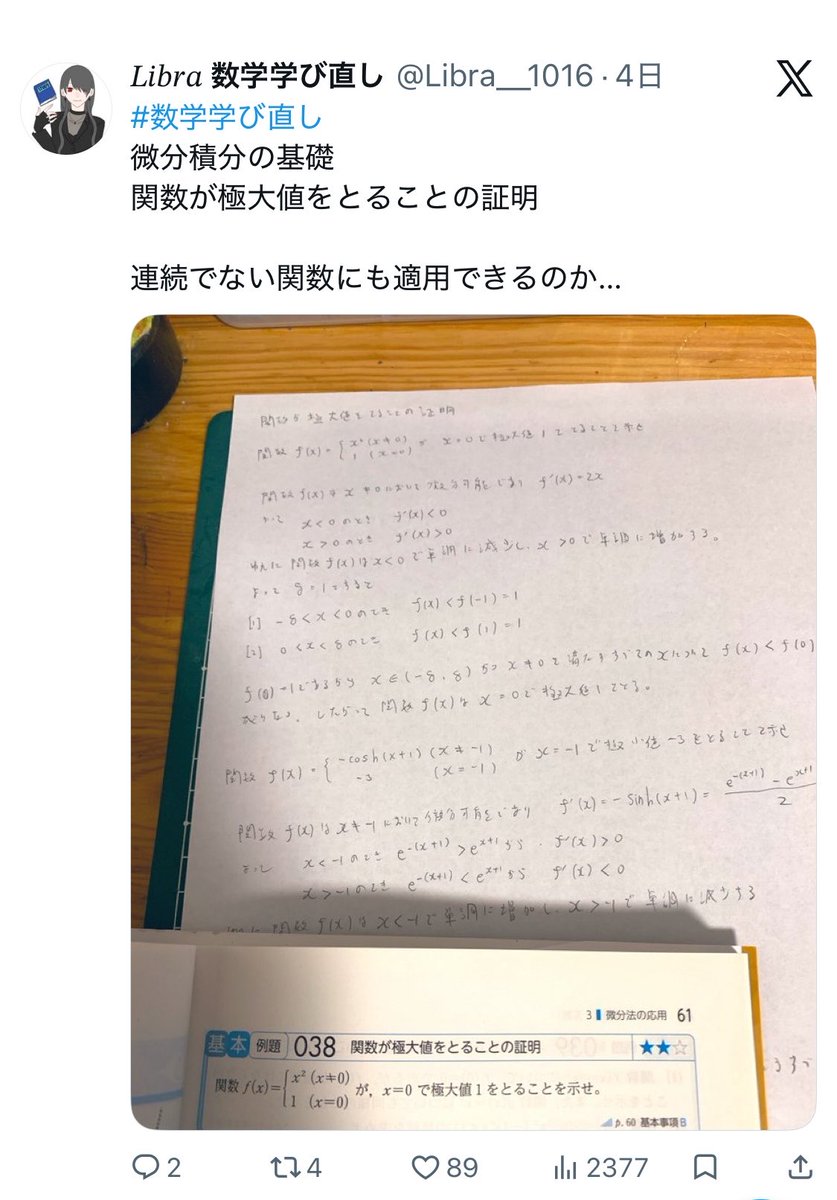 Libra 数学学び直し @Libra__1016・4日
#数学学び直し
微分積分の基礎
関数が極大値をとることの証明
連続でない関数にも適用できるのか...
関数が極大値をとることの証明
関数 f(x)={x² (x≠0) 1 (x=0) が x=0で極大値1をとることを示せ
関数f(x)は x≠0において微分可能であり f'(x)=2x
よって x<0のとき f'(x)<0
x>0のとき f'(x)>0
ゆえに 関数f(x)は x<0で単調に減少し、x>0で単調に増加する。
よって δ=1とすると
[1] -δ<x<0のとき f(x)<f(-1)=1
[2] 0<x<δのとき f(x)<f(1)=1
f(0)=1であるから x∈(-δ,δ)かつ x≠0を満たすすべてのxについて f(x)<f(0)
がいえる。したがって 関数f(x)は x=0で極大値1をとる。
関数 f(x)={-cosh(x+1) (x≠-1) -3 (x=-1) が x=-1で極小値-3をとることを示せ
関数f(x)は x≠-1において微分可能であり f'(x)=-sinh(x+1)= e^{-(x+1)}-e^{x+1} / 2
よって x<-1のとき e^{-(x+1)}>e^{x+1}から f'(x)>0
x>-1のとき e^{-(x+1)}<e^{x+1}から f'(x)<0
関数f(x)は x<-1で単調に増加し、x>-1で単調に減少する
3 微分法の応用 61
基本 例題 038 関数が極大値をとることの証明 ★★☆
関数 f(x)={x² (x≠0) 1 (x=0) が，x=0 で極大値1をとることを示せ。
p.60 基本事項B
2 4 89 2377